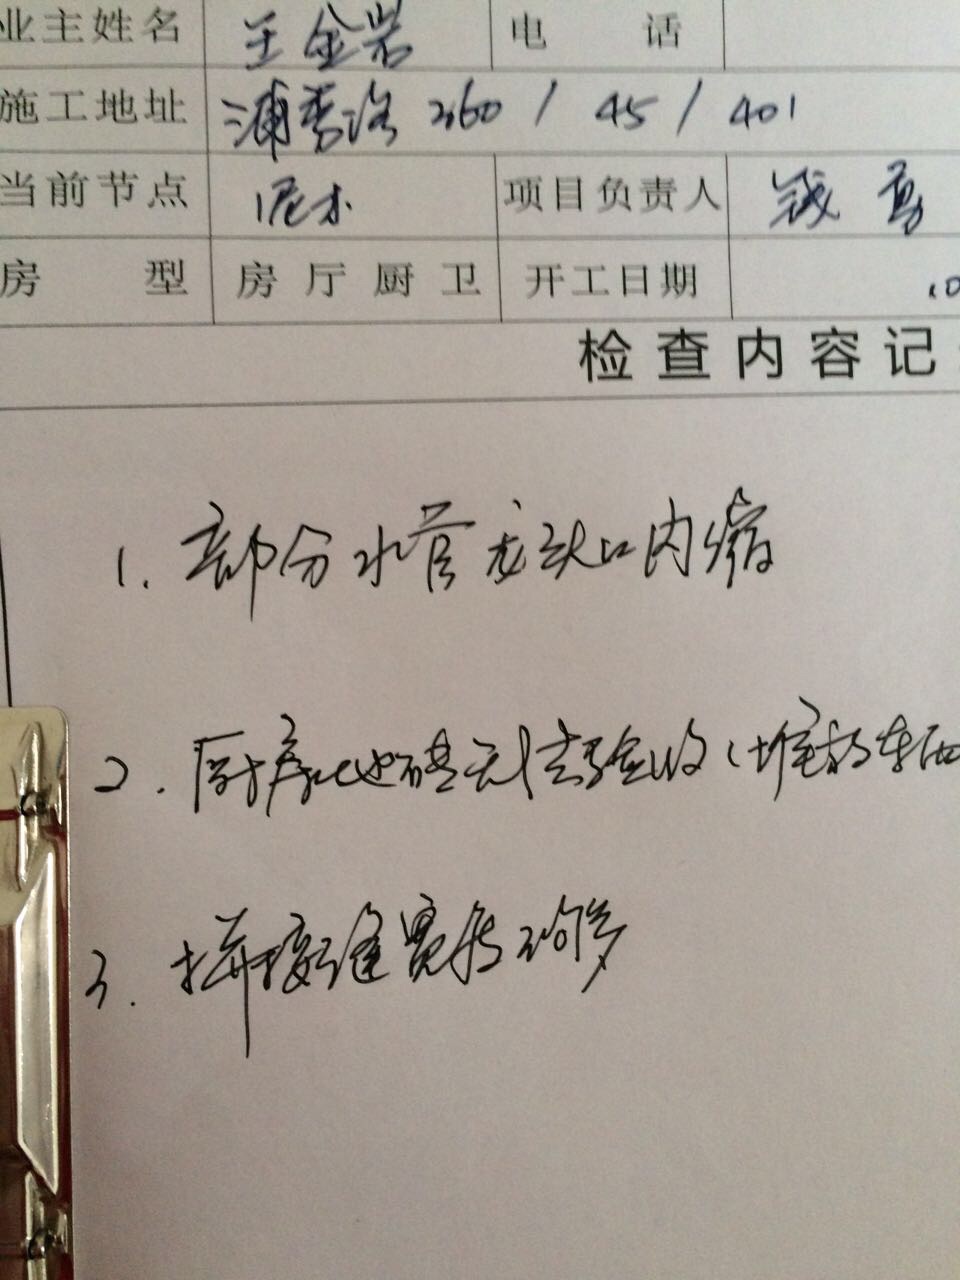 业主姓名 王金岩 电 话
施工地址 浦秀路 260 / 45 / 401
当前节点 泥木 项目负责人 钱勇
房 型 房 厅 厨 卫 开工日期 .10
检查内容记
1. 部分水管龙头口内缩
2. 厨房地砖无法验收（堆放东西
3. 拼接缝宽度不均匀